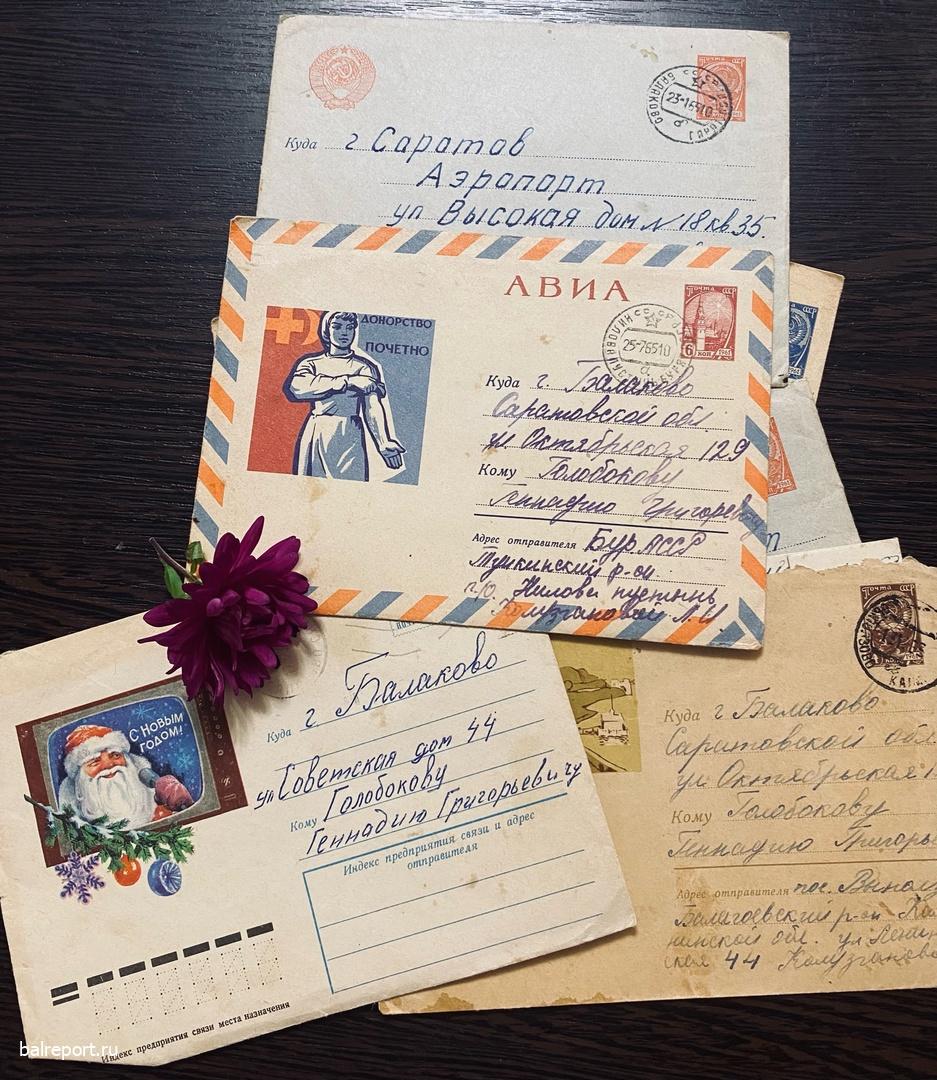 Куда г Саратов
Аэропорт
ул Высокая дом N 18 кв 35.
23-1 65 10
ПОЧТА СССР
АВИА
ДОНОРСТВО
ПОЧЕТНО
25-7 65 10
6 КОП
Куда г. Балаково
Саратовской обл
ул. Октябрьская 129
Кому Голобокову
Геннадию Григорьевичу
Адрес отправителя Бур АССР
Тункинский р-он
п/о. Нилова пустынь
Л. И
С НОВЫМ
ГОДОМ!
Куда г Балаково
ул Советская дом 44
Кому Голобокову
Геннадию Григорьевичу
Индекс предприятия связи и адрес
отправителя
Индекс предприятия связи места назначения
Куда г Балаково
Саратовской обл
ул Октябрьская
Кому Голобокову
Геннадию Григорь
Адрес отправителя пос.
р-он
обл. ул
44
balreport.ru